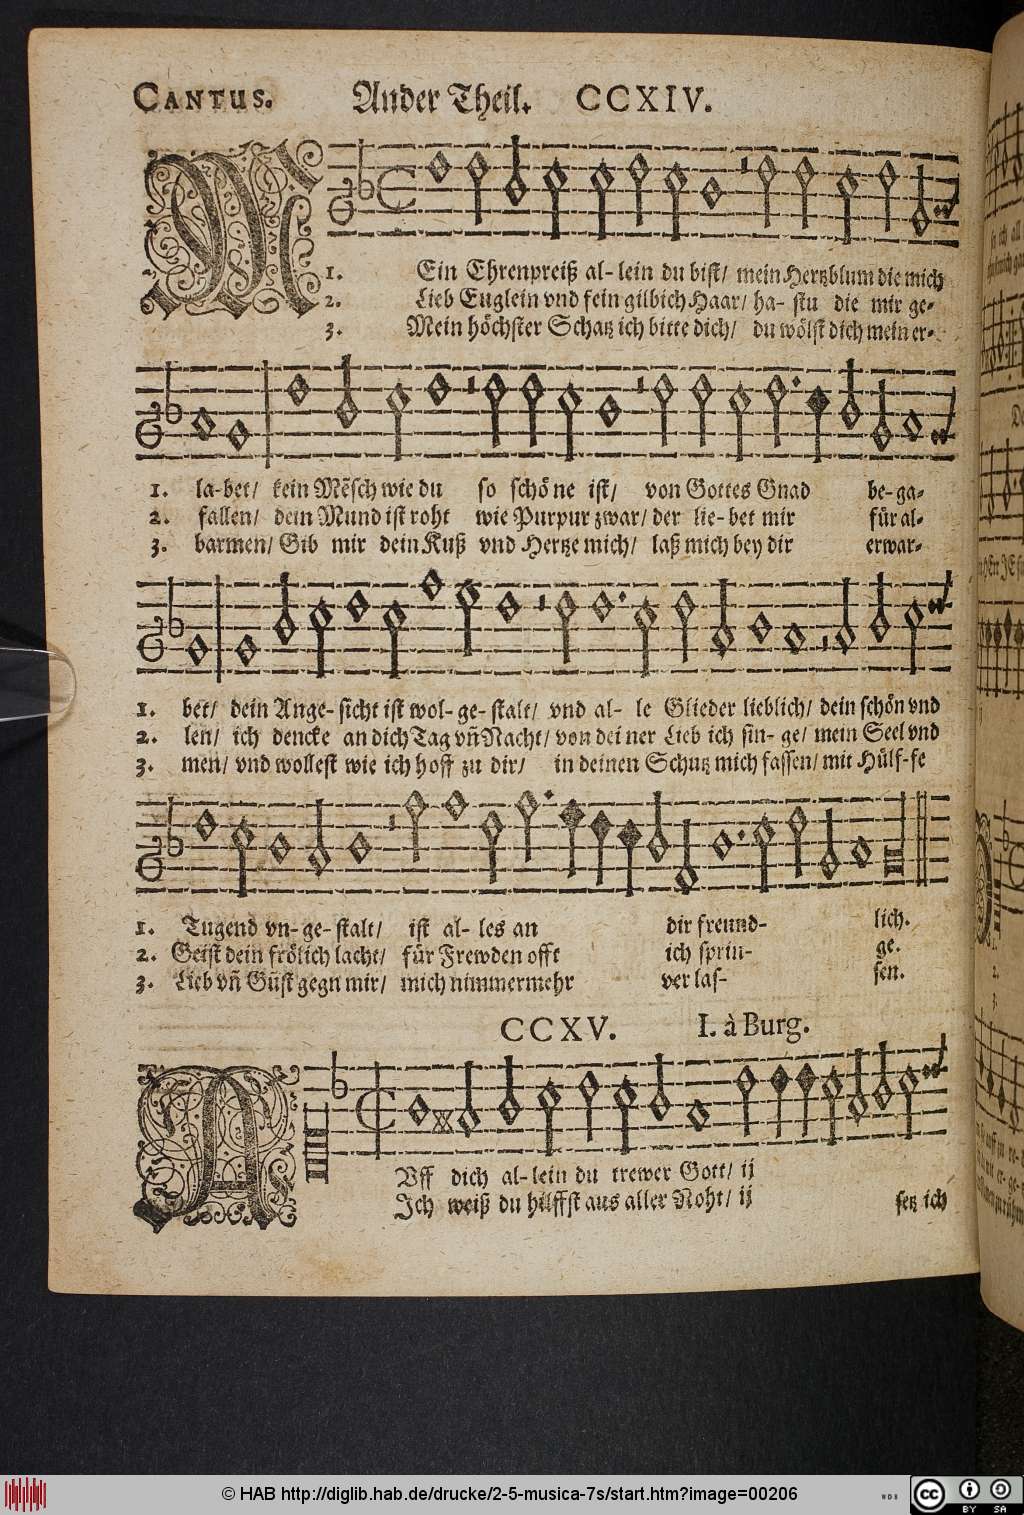 CANTUS. Ander Theil. CCXIV.
M
1. Ein Ehrenpreiß al- lein du bist/ mein Hertzblum die mich
2. Lieb Euglein vnd fein gilbich Haar/ ha- stu die mir ge-
3. Mein höchster Schatz ich bitte dich/ du wölst dich mein er-
1. la-bet/ kein Mẽsch wie du so schö ne ist/ von Gottes Gnad be-ga-
2. fallen/ dein Mund ist roht wie Purpur zwar/ der lie- bet mir für al-
3. barmen/ Gib mir dein Kuß vnd Hertze mich/ laß mich bey dir erwar-
1. bet/ dein Ange- sicht ist wol- ge- stalt/ vnd al- le Glieder lieblich/ dein schön vnd
2. len/ ich dencke an dich Tag vñ Nacht/ von dei ner Lieb ich sin- ge/ mein Seel vnd
3. men/ vnd wollest wie ich hoff zu dir/ in deinen Schutz mich fassen/ mit Hülf-fe
1. Tugend vn- ge- stalt/ ist al- les an dir freund- lich.
2. Geist dein frölich lacht/ für Frewden offt ich sprin- ge.
3. Lieb vñ Güst gegn mir/ mich nimmermehr ver las- sen.
CCXV. I. à Burg.
A
Vff dich al- lein du trewer Gott/ ij
Ich weiß du hilffst aus aller Noht/ ij setz ich
© HAB http://diglib.hab.de/drucke/2-5-musica-7s/start.htm?image=00206
WDB
cc BY SA